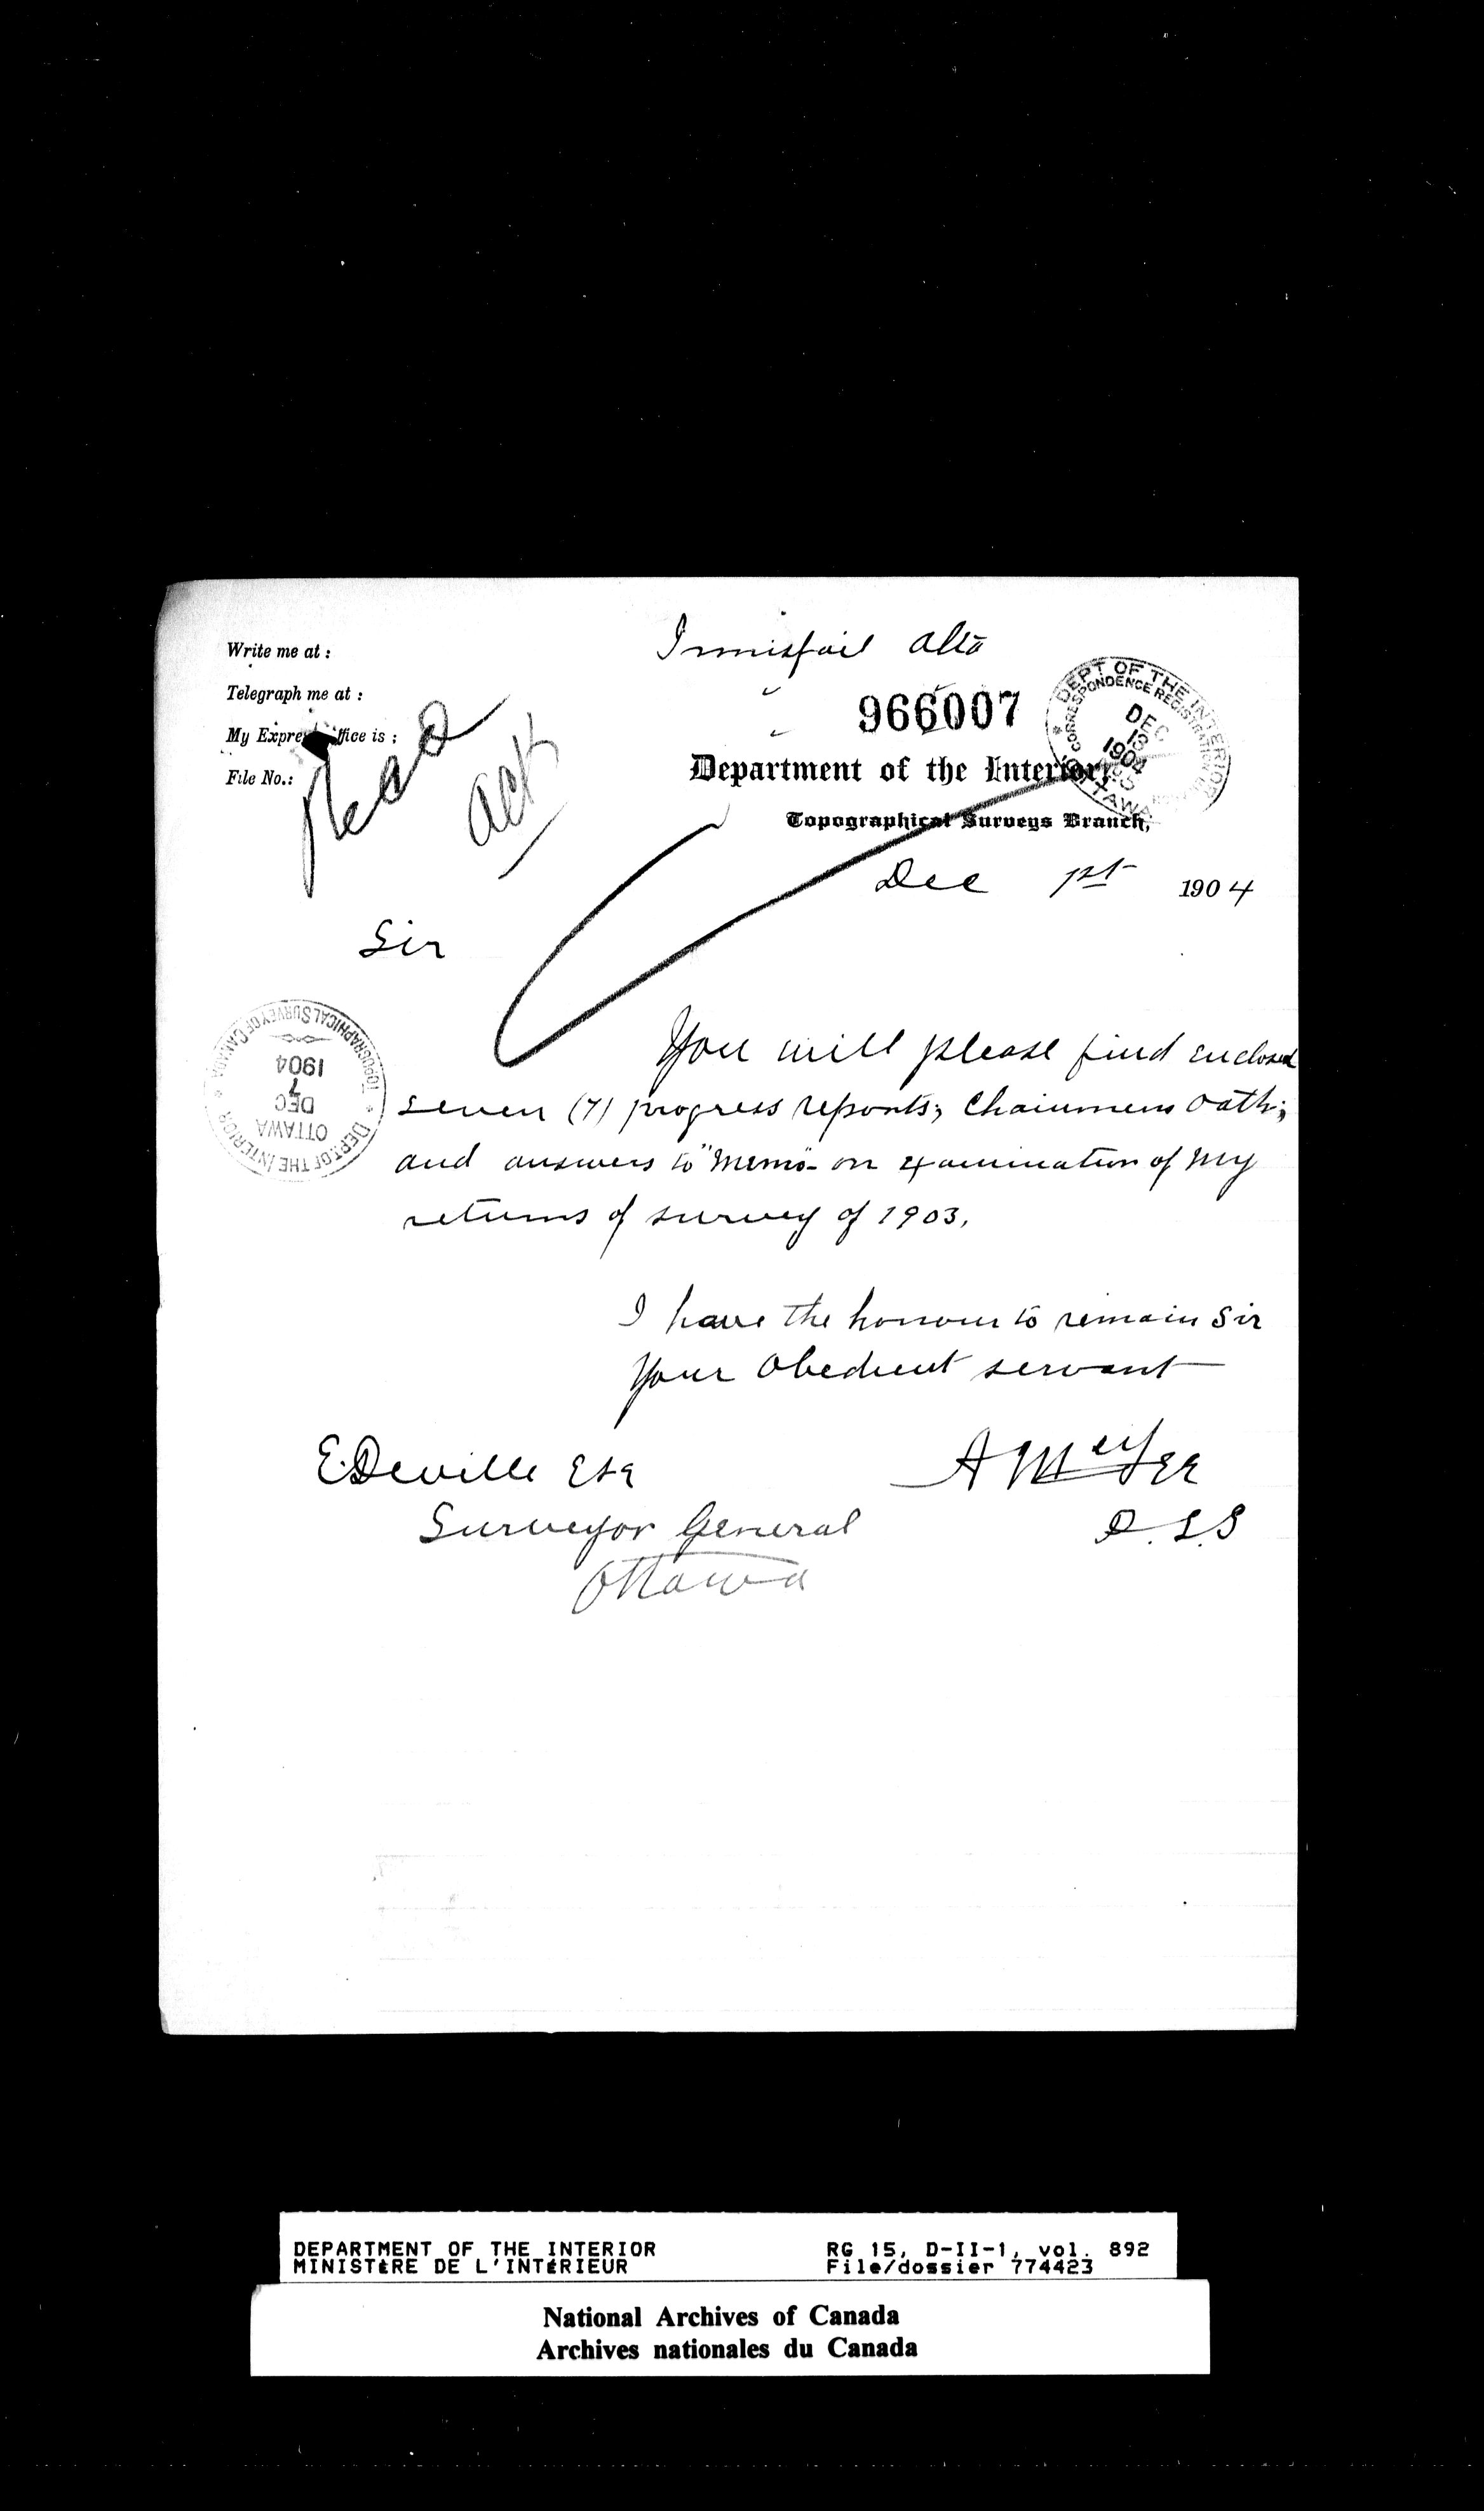 Write me at :
Telegraph me at :
My Express Office is :
File No.:
Innisfail Alta
966007
DEPT OF THE INTERIOR
CORRESPONDENCE REGISTRATION
DEC
13
1904
OTTAWA
Department of the Interior,
Topographical Surveys Branch,
Read
Ack
Dec 1st 1904
Sir
TOPOGRAPHICAL SURVEY OF CANADA
1904
7
DEC
OTTAWA
DEPT OF THE INTERIOR
You will please find enclosed
seven (7) progress reports; Chainmens Oath;
and answers to "Memo" on examination of my
returns of survey of 1903.
I have the honour to remain Sir
Your Obedient servant
E. Deville Esq
A McFee
Surveyor General
D.L.S
Ottawa
DEPARTMENT OF THE INTERIOR
MINISTÈRE DE L'INTÉRIEUR
RG 15, D-II-1, vol. 892
File/dossier 774423
National Archives of Canada
Archives nationales du Canada